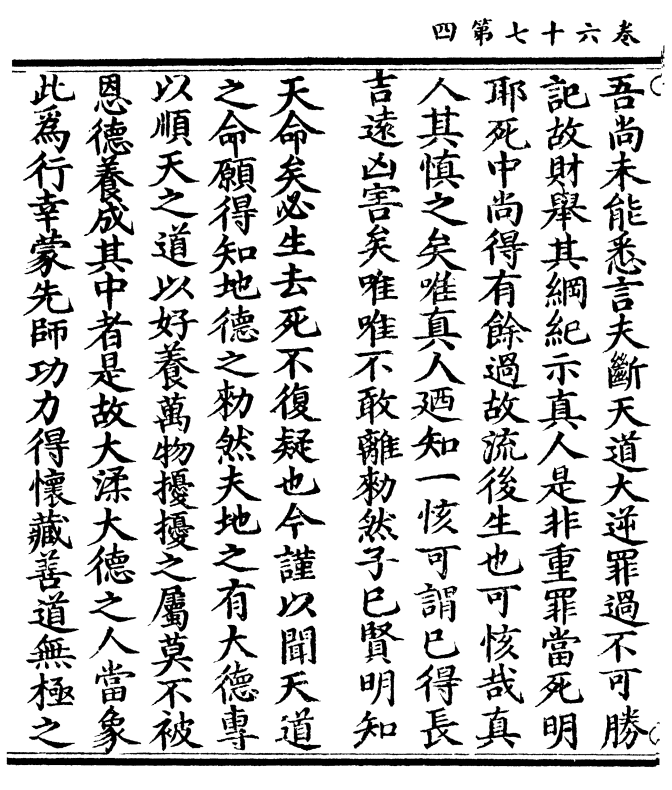 卷六十七第四
吾尚未能悉言夫斷天道大逆罪過不可勝
記故財舉其綱紀示真人是非重罪當死明
耶死中尚得有餘過故流後生也可恢哉真
人其慎之矣唯真人廼知一恢可謂已得長
吉遠凶害矣唯唯不敢離勑然子已賢明知
天命矣必生去死不復疑也今謹以聞天道
之命願得知地德之勑然夫地之有大德專
以順天之道以好養萬物擾擾之屬莫不被
恩德養成其中者是故大渘大德之人當象
此為行幸蒙先師功力得懷藏善道無極之